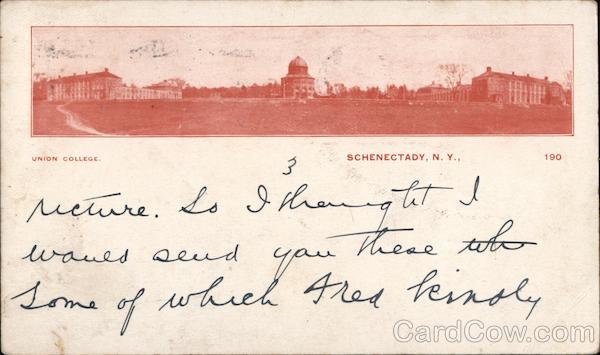 UNION COLLEGE.
SCHENECTADY, N. Y., 190
3
ructure. So I thought I
would send you these wh
Some of which Fred kindly
CardCow.com